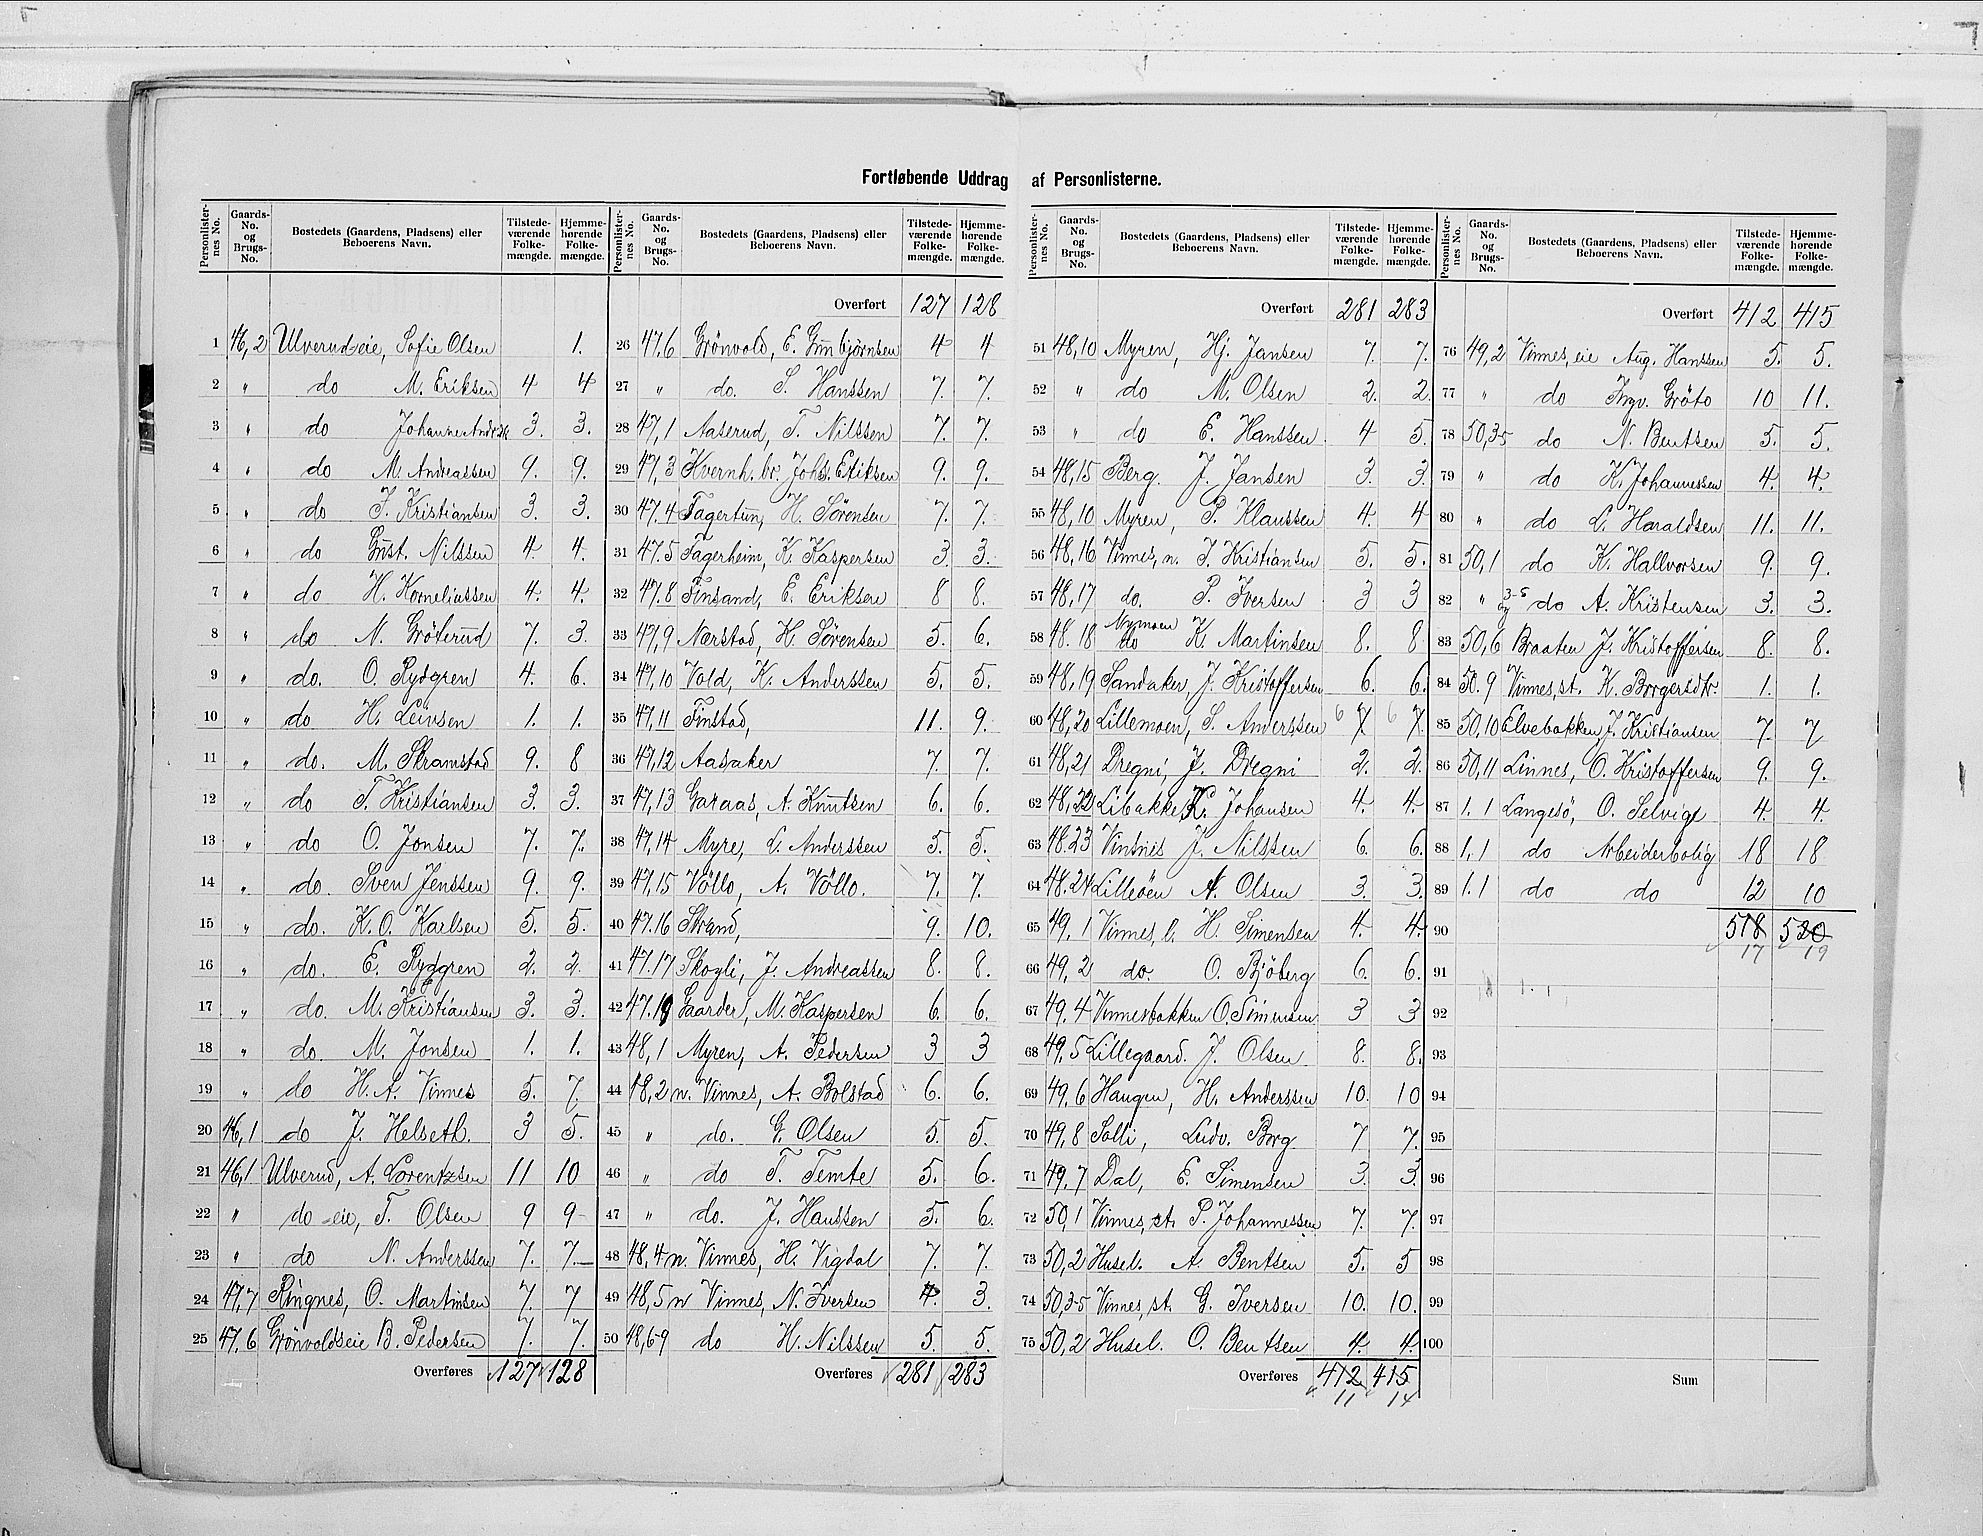 Fortløbende Uddrag af Personlisterne.
Personlisternes No. Gaards-No. og Brugs-No. Bostedets (Gaardens, Pladsens) eller Beboerens Navn. Tilstedeværende Folkemængde. Hjemmehørende Folkemængde.
1 46,2 Ulverudseie, Sofie Olsen 1.
2 " do M. Eriksen 4 4
3 " do Johanne Andr.dtr 3. 3.
4 " do M. Andreassen 9. 9.
5 " do J. Kristiansen 3. 3.
6 " do Gust. Nilssen 4 4.
7 " do H. Korneliussen 4. 4.
8 " do N. Gröterud 7. 3.
9 " do. O. Rydgren 4. 6.
10 " do H. Leivsen 1. 1.
11 " do. M. Skramstad 9. 8
12 " do T. Kristiansen 3. 3.
13 " do O. Jonsen 7. 7.
14 " do. Sven Jenssen 9. 9.
15 " do. K. O. Karlsen 5. 5.
16 " do. E. Rydgren 2. 2.
17 " do. M. Kristiansen 3. 3.
18 " do. M. Jonsen 1. 1.
19 " do H. A. Vinnes 5. 7.
20 46,1 do J. Helseth. 3 5.
21 46,1 Ulverud, A. Lorentzsen 11 10
22 " do eie, T. Olsen 9 9
23 " do N. Anderssen 7. 7.
24 47,7 Ringnes, O. Martinsen 7. 7
25 47,6 Grönvoldseie B. Pedersen 7. 7.
Overføres 127 128
Personlisternes No. Gaards-No. og Brugs-No. Bostedets (Gaardens, Pladsens) eller Beboerens Navn. Tilstedeværende Folkemængde. Hjemmehørende Folkemængde.
Overført 127 128
26 47.6 Grönvold, E. Gunbjörnsen 4 4
27 " do. S. Hanssen 7. 7.
28 47,1 Aaserud, T. Nilssen 7. 7.
29 47,3 Kvernh. br. Johs. Eriksen 9. 9.
30 47.4 Fagertun, H. Sörensen 7. 7.
31 47.5 Fagerheim, K. Kaspersen 3 3.
32 47.8 Finsand, E. Eriksen 8 8.
33 47,9 Nærstad, H. Sörensen 5. 6.
34 47,10 Vold, K. Anderssen 5. 5.
35 47,11 Finstad, 11. 9.
36 47,12 Aasaker 7. 7.
37 47,13 Garaas, A. Knutsen 6. 6.
38 47,14 Myre, L. Anderssen 5. 5.
39 47,15 Völlo, A. Völlo. 7. 7.
40 47.16 Strand, 9. 10.
41 47.17 Skogli, J. Andreassen 8. 8.
42 47.19 Gaarder, M. Kaspersen 6. 6.
43 48,1 Myren, A. Pedersen 3 3
44 48,2 n. Vinnes, A. Bolstad 6. 6.
45 " do. G. Olsen 5. 5.
46 " do T. Temte 5. 6.
47 " do. J. Hanssen 5. 6.
48 48,4 n. Vinnes, H. Vigdal 7. 7.
49 48,5 n Vinnes, N. Iversen 4. 3.
50 48,6-9 do H. Nilssen 5. 5.
Overføres 281 283
Personlisternes No. Gaards-No. og Brugs-No. Bostedets (Gaardens, Pladsens) eller Beboerens Navn. Tilstedeværende Folkemængde. Hjemmehørende Folkemængde.
Overført 281 283
51 48,10 Myren, Hj. Jansen 7. 7.
52 " do M. Olsen 2. 2.
53 " do E. Hanssen 4 5.
54 48,15 Berg. J. Jansen 3. 3.
55 48,10 Myren, P. Klaussen 4. 4
56 48,16 Vinnes, n. J. Kristiansen 5. 5.
57 48,17 do. P. Iversen 3 3
58 48.18 Nymoen do K. Martinsen 8. 8
59 48,19 Sandaker, J. Kristoffersen 6. 6.
60 48,20 Lillemoen, S. Anderssen 6 7 6 7.
61 48,21 Dregni, J. Dregni 2. 2.
62 48,22 Libakke, K. Johansen 4. 4.
63 48.23 Vintnes J. Nilssen 6. 6.
64 48.24 Lilleöen A. Olsen 3. 3.
65 49.1 Vinnes, l. H. Simensen 4. 4.
66 49,2 do. O. Bjöberg 6. 6.
67 49.4 Vinnesbakken O. Simensen 3 3
68 49,5 Lillegaard. J. Olsen 8. 8.
69 49.6 Haugen, H. Anderssen 10. 10
70 49,8 Solli, Ludv. Borg 7 7.
71 49,7 Dal, E. Simensen 3. 3.
72 50,1 Vinnes, st. P. Johannessen 7. 7.
73 50,2 Husel. A. Bentsen 5. 5
74 50,3-5 Vinnes, st. G. Iversen 10. 10.
75 50,2 Husel. O. Bentsen 4. 4.
Overføres 412 415
11 14
Personlisternes No. Gaards-No. og Brugs-No. Bostedets (Gaardens, Pladsens) eller Beboerens Navn. Tilstedeværende Folkemængde. Hjemmehørende Folkemængde.
Overført 412 415
76 49,2 Vinnes, eie Aug. Hanssen 5. 5.
77 " do Ingv. Gröto 10 11.
78 50,3-5 do N. Bentsen 5. 5.
79 " do K. Johannessen 4. 4.
80 " do L. Haraldsen 11. 11.
81 50,1 do K. Hallvorsen 9. 9.
82 " og 3-5 do A. Kristensen 3. 3.
83 50,6 Braaten J. Kristoffersen 8. 8.
84 50.9 Vinnes, st. K. Borgersdtr. 1. 1.
85 50,10 Elvebakken J. Kristiansen 7. 7
86 50,11 Linnes, O. Kristoffersen 9. 9.
87 1.1 Langesö, O. Selvige 4. 4.
88 1,1 do Arbeiderbolig 18 18
89 1.1 do do 12 10
90 518 520
17 19
91
92
93
94
95
96
97
98
99
100
Sum